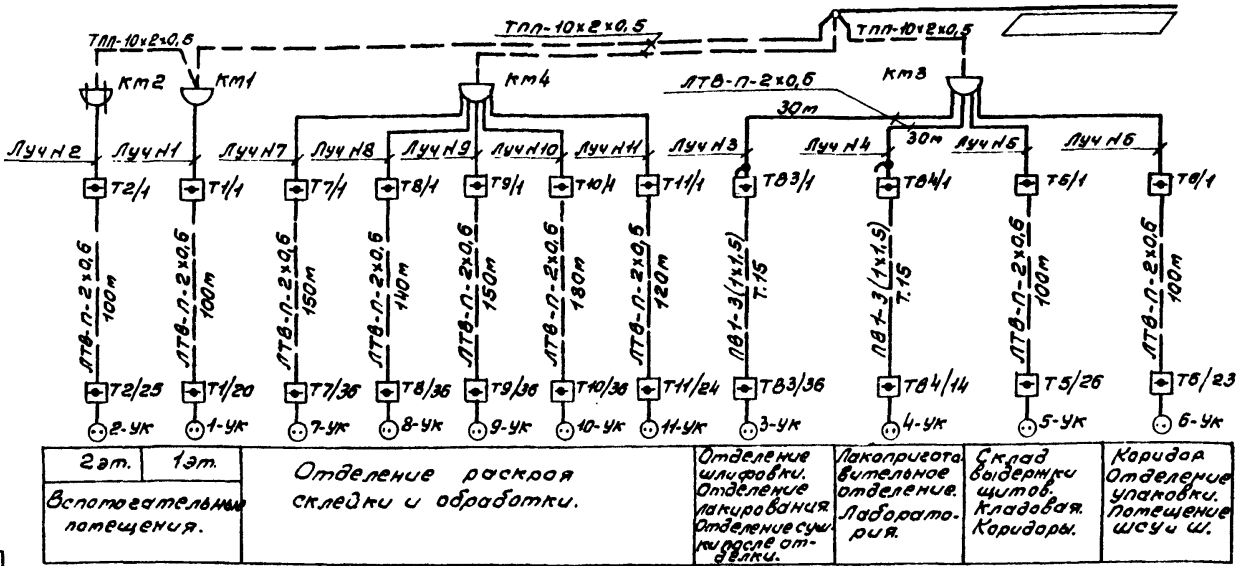 ТПП-10х2х0,5
ТПП-10х2х0,5
ТПП-10х2х0,5
КМ2
КМ1
КМ4
КМ3
ЛТВ-П-2х0,6
30м
30м
Луч N2
Луч N1
Луч N7
Луч N8
Луч N9
Луч N10
Луч N11
Луч N3
Луч N4
Луч N5
Луч N6
Т2/1
Т1/1
Т7/1
Т8/1
Т9/1
Т10/1
Т11/1
ТВ3/1
ТВ4/1
Т5/1
Т6/1
ЛТВ-П-2х0,6
100м
ЛТВ-П-2х0,6
100м
ЛТВ-П-2х0,6
150м
ЛТВ-П-2х0,6
140м
ЛТВ-П-2х0,6
150м
ЛТВ-П-2х0,6
180м
ЛТВ-П-2х0,6
120м
ПВ1-3(1х1,5)
Т.15
ПВ1-3(1х1,5)
Т.15
ЛТВ-П-2х0,6
100м
ЛТВ-П-2х0,6
100м
Т2/25
Т1/20
Т7/36
Т8/36
Т9/36
Т10/36
Т11/24
ТВ3/36
ТВ4/14
Т5/26
Т6/23
2-УК
1-УК
7-УК
8-УК
9-УК
10-УК
11-УК
3-УК
4-УК
5-УК
6-УК
2эт.
1эт.
Вспомогательные
помещения.
Отделение раскроя
склейки и обработки.
Отделение
шлифовки.
Отделение
лакирования
Отделение суш-
ки после от-
делки.
Лакопригото-
вительное
отделение.
Лаборато-
рия.
Склад
выдержки
щитов.
Кладовая.
Коридоры.
Коридор
Отделение
упаковки.
Помещение
ШСУ и Ш.